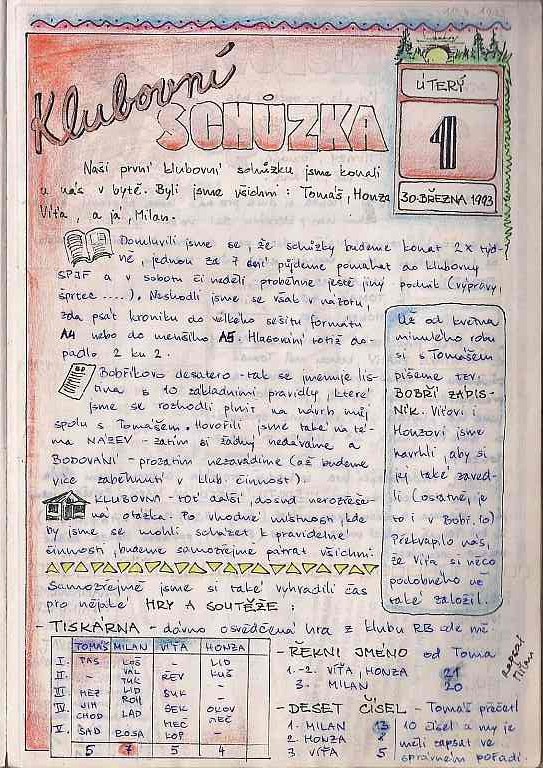 Klubovní
SCHŮZKA
ÚTERÝ
1
30. BŘEZNA 1993
Naši první klubovní schůzku jsme konali
u nás v bytě. Byli jsme všichni: Tomáš, Honza
Víťa, a já, Milan.
Domluvili jsme se, že schůzky budeme konat 2x týd-
ně, jednou za 7 dní půjdeme pomáhat do klubovny
SPJF a v sobotu či neděli proběhne ještě jiný podnik (výpravy,
šprtec ....). Neshodli jsme se však v názoru,
zda psát kroniku do velkého sešitu formátu
A4 nebo do menšího A5. Hlasování totiž do-
padlo 2 ku 2.
Bobříkovo desatero - tak se jmenuje lis-
tina s 10 základními pravidly, které
jsme se rozhodli plnit na návrh můj
spolu s Tomášem. Hovořili jsme také na té-
ma NÁZEV - zatím si žádný nedáváme a
BODOVÁNÍ - prozatím nezavádíme (až budeme
více zaběhnutí v klub. činnosti).
KLUBOVNA - toť další, dosud nerozřeše-
ná otázka. Po vhodné místnosti, kde
by jsme se mohli scházet k pravidelné
činnosti, budeme samozřejmě pátrat všichni.
Už od května
minulého roku
si s Tomášem
píšeme tzv.
BOBŘÍ ZÁPIS-
NÍK. Víťovi i
Honzovi jsme
navrhli, aby si
jej také zaved-
li (ostatně, je
to i v Bobř. 10)
Překvapilo nás,
že Víťa si něco
podobného už
také založil.
Samozřejmě jsme si také vyhradili čas
pro nějaké HRY A SOUTĚŽE:
- TISKÁRNA - dávno osvědčená hra z klubu RB kde mě-
TOMÁŠ MILAN VÍŤA HONZA
I. PAS LOĎ - LID
II. - VAL TUK REV KUŠ
III. MEZ LID ROH SUK -
IV. JIH CHOD LAD SEK OKOV MEČ
V. SAD ROSA MEČ KOP -
5 7 5 4
- ŘEKNI JMÉNO od Toma
1.-2. VÍŤA, HONZA 21
3. MILAN 20
- DESET ČÍSEL - Tomáš přečetl
1. MILAN 13 10 čísel a my je
2. HONZA 8 měli zapsat ve
3 VÍŤA 5 správném pořadí.
Zapsal
Milan